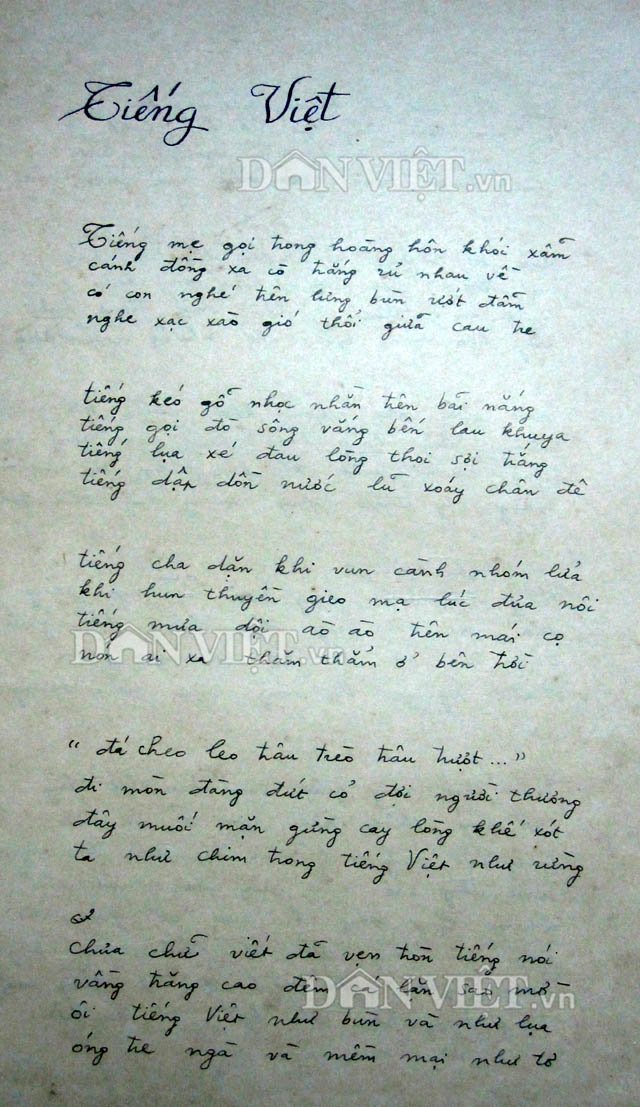 Tiếng Việt
DÂN VIỆT.vn
Tiếng mẹ gọi trong hoàng hôn khói xẫm
cánh đồng xa cò trắng rủ nhau về
có con nghé trên lưng bùn ướt đẫm
nghe xạc xào gió thổi giữa cau tre
tiếng kéo gỗ nhọc nhằn trên bãi nắng
tiếng gọi đò sông vắng bến lau khuya
tiếng lụa xé đau lòng thoi sợi trắng
tiếng dập dồn nước lũ xoáy chân đê
tiếng cha dặn khi vun cành nhóm lửa
khi hun thuyền gieo mạ lúc đưa nôi
tiếng mưa dội ào ào trên mái cọ
DÂN VIỆT.vn
nón ai xa thăm thẳm ở bên trời
" đá cheo leo trâu trèo trâu trượt... "
đi mòn đàng đứt cỏ đợi người thương
đây muối mặn gừng cay lòng khế xót
ta như chim trong tiếng Việt như rừng
Chưa chữ viết đã vẹn tròn tiếng nói
vầng trăng cao đêm cá lặn sao mờ
DÂN VIỆT.vn
ôi tiếng Việt như bùn và như lụa
óng tre ngà và mềm mại như tơ